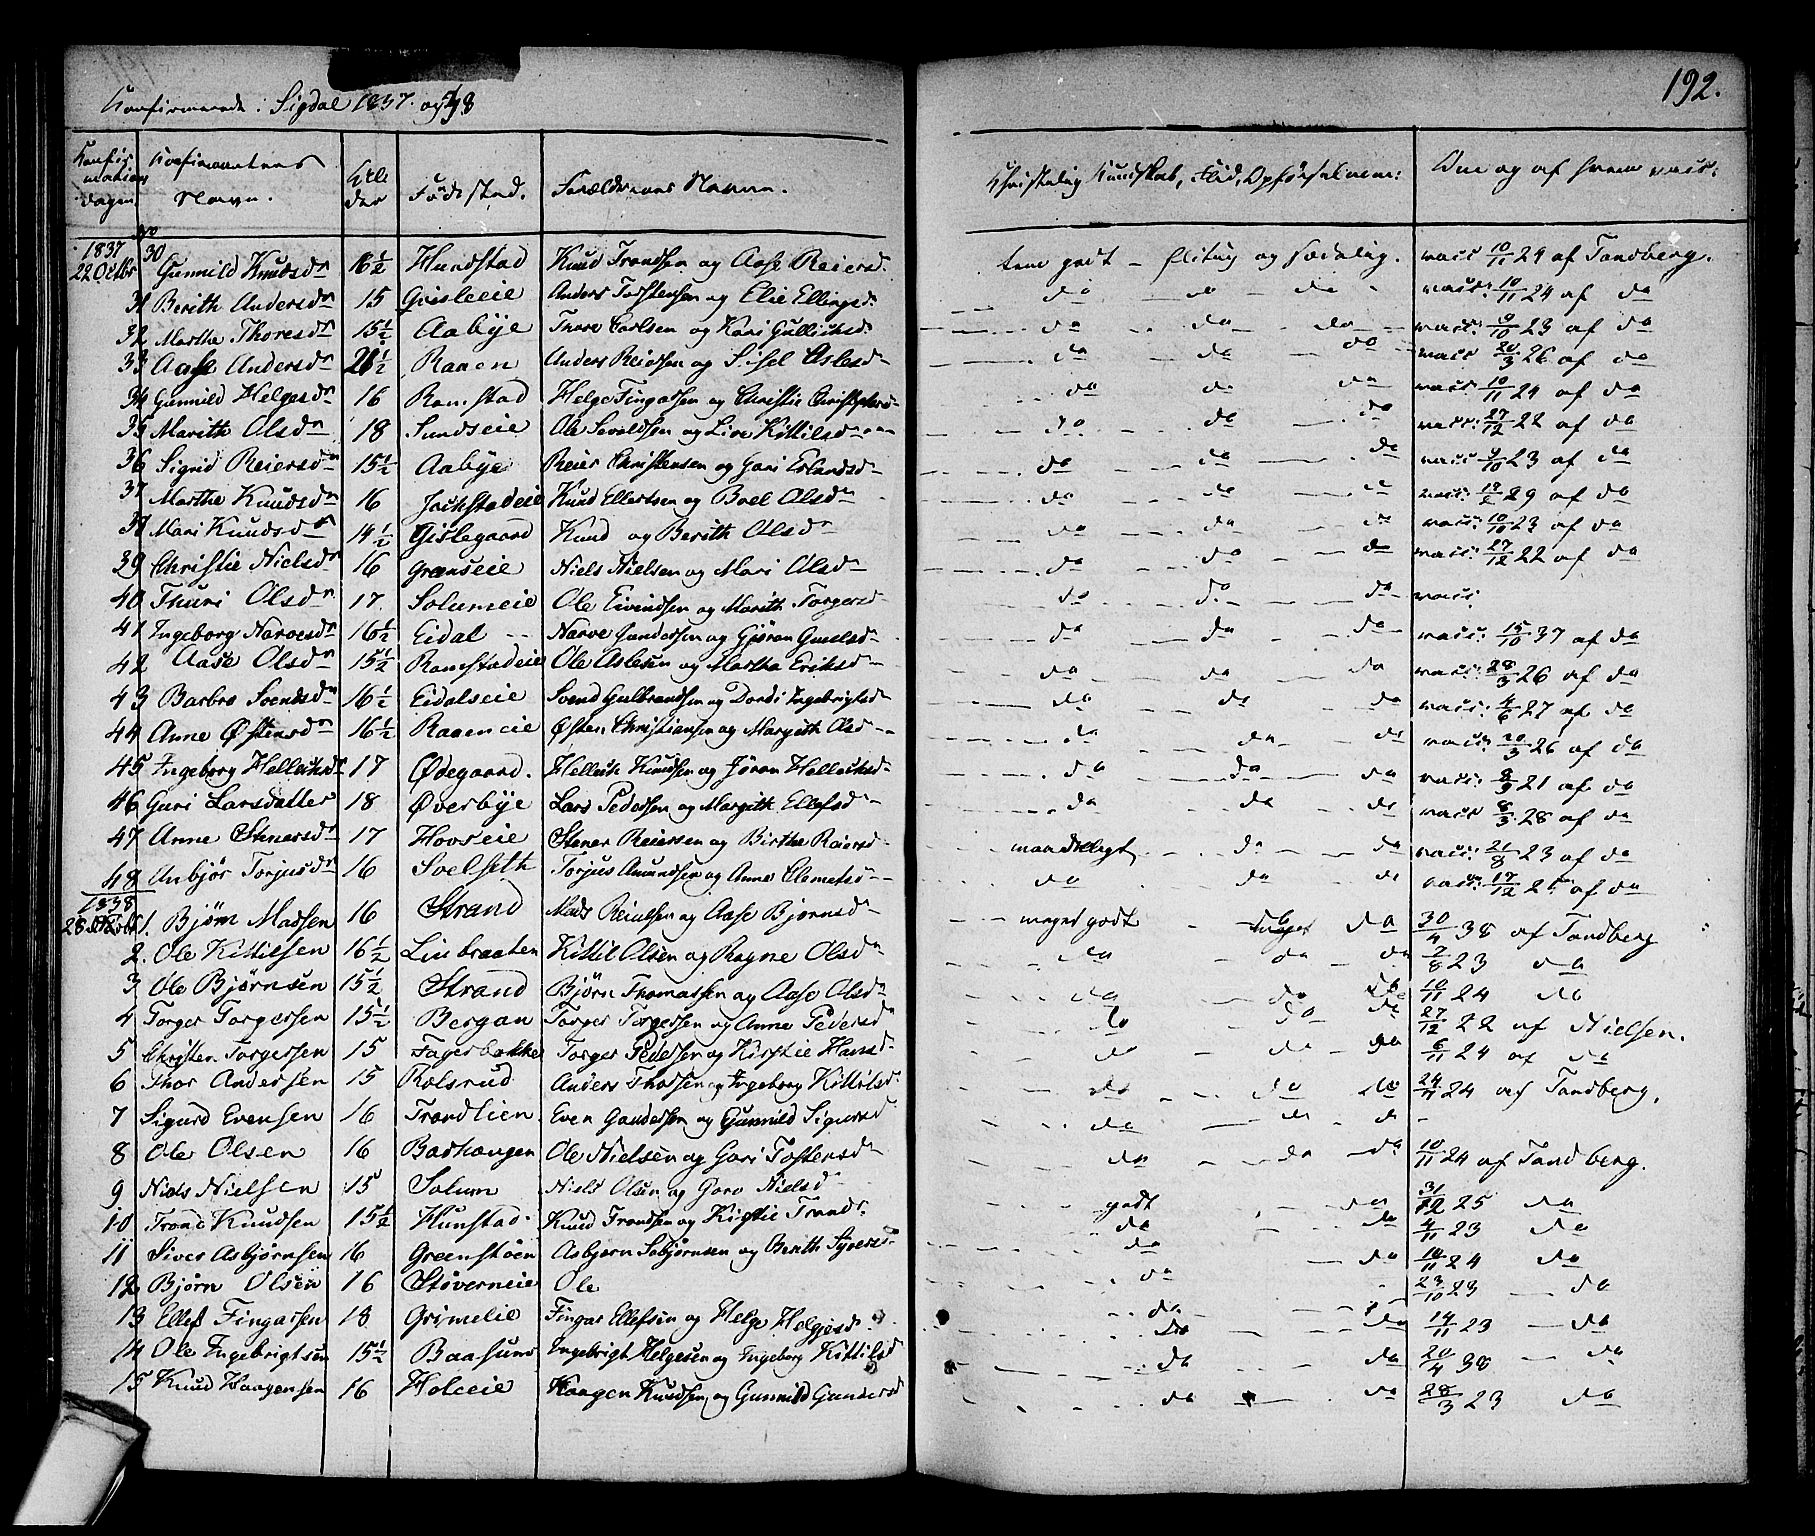 192.
Confirmerede i Sigdal 1837. og 38
Confirmations dagen | Confirmantens Navn. | Alder | Födested. | Forældrenes Navne. | Christelig Kundskab, Flid, Opförsel | Om og af hvem vacc:
1837 22 Octbr No 30 Gunnild Knudsdr 16½ Hundstad Knud Trondsen og Aase Reiersd. temt godt - flitig og sædelig. vacc 10/11 24 af Tandberg.
31 Berith Andersdr 15 Gislecie Anders Torstensen og Elie Ellingsd. do do do vacc: 10/11 24 af do
32 Marthe Thoresdr 15½ Aabye Thore Carlsen og Kari Gulliksd. do do do vacc: 9/10 23 af do
33 Aase Andersdr 21½ Raaen Anders Reiersen og Sisel Aslesd do do do vacc 20/3 26 af do
34 Gunnild Helgesdr 16 Ramstad Helge Fingarsen og Christie Christophersd do do do vacc: 10/11 24 af do
35 Marith Olsdr 18 Sundseie Ole Sevaldsen og Live Kittilsd do do do vacc: 27/12 22 af do
36 Sigrid Reiersdr 15½ Aabye Reier Christensen og Gari Erlandsd do do do vacc 9/10 23 af do
37 Marthe Knudsdr 16 Jockstadeie Knud Ellertsen og Boel Olsdr do do do vacc: 29 af do
38 Mari Knudsdr 14½ Gislegaard Knud og Berith Olsdr do do do vacc: 10/10 23 af do
39 Christie Nielsdr 16 Grønseie Niels Nielsen og Mari Olsdr do do do vacc: 27/12 22 af do
40 Thuri Olsdr 17. Solumeie Ole Eivindsen og Marith Torgersd do do do vacc.
41 Ingeborg Narvesdr 16½ Eidal Narve Gundersen og Gjöran do do do vacc: 15/10 37 af do
42 Aase Olsdr 15½ Ramstadeie Ole Aslesen og Martha Eriksd do do do vacc: 28/3 26 af do
43 Barbro Svendsdr 16½ Eidalseie Svend Gulbrandsen og Dordi Ingebrigtsd do do do vacc: 4/6 27 af do
44 Anne Østensdr 16½ Raaeneie Østen Christiansen og Margith Olsd do do do vacc. 20/3 26 af do
45 Ingeborg Helleiksdr 17 Ødegaard. Helleik Knudsen og Jöran Helleiksd do do do vacc: 8/9 21 af do
46 Guri Larsdatter 18 Øverbye Lars Pedersen og Margith Ellefsd do do do vacc 8/3 28 af do
47 Anne Stenersdr 17 Hovseie Stener Reiersen og Birthe Reiersd maadelegt do do vacc: 21/8 23 af do
48 Anbjör Torjusdr 16 Soelseth Torjus Amundsen og Anne Clemetsd do do do vacc: 17/12 25 af do
1838 28 Octbr 1. Bjørn Madsen 16 Strand Mads og Aase Bjørnsd meget godt do 30/4 38 af Tandberg
2. Ole Kittilsen 16½ Liebraaten Kittil Olsen og Ragne Olsdr do do do 7/8 23 do
3 Ole Bjørnsen 15½ Strand Bjørn Thomassen og Aase Olsdr do do do 10/11 24 do
4 Torger Torgersen 15½ Bergan Torger Torgersen og Anne Pedersd do do do 27/12 22 af Nielsen.
5 Christen Torgersen 15 Fagerbakke Torger Pedersen og Kirstie Hansd do do do 6/11 24 af do
6 Thor Andersen 15 Rolsrud Anders Thorsen og Ingeborg Kittilsd. do do do 24/11 24 af Tandberg.
7 Sigurd Evensen 16 Trondlien. Even Gundersen og Gunnild Sigursd do do do -
8 Ole Olsen 16 Badhaugen Ole Nielsen og Gari Tostensd do do do 10/11 24 af Tandberg.
9 Niels Nielsen 15 Solum Niels Olsen og Goro Nielsd godt do 31/12 25 do
10 Trond Knudsen 15½ Hunstad Knud Trondsen og Kirstie Trondsd. do do 4/11 23 do
11 Siver Asbjørnsen 16 Greenstøen Asbjørn Sebjørnsen og Berith Syversd do do 10/11 24 do
12 Bjørn Olsen 16 Støverneie Ole do 23/10 23 do
13 Ellef Fingarsen 18 Grimelie Fingar Ellefsen og Helge Helgesd do do 14/11 23 do
14 Ole Ingebrigtsen 15½ Baasum Ingebrigt Helgesen og Ingeborg Kittilsd do do 20/4 38 do
15 Knud Haagensen 16 Holeeie Haagen Knudsen og Gunnild Gundersd do do 28/3 23 do